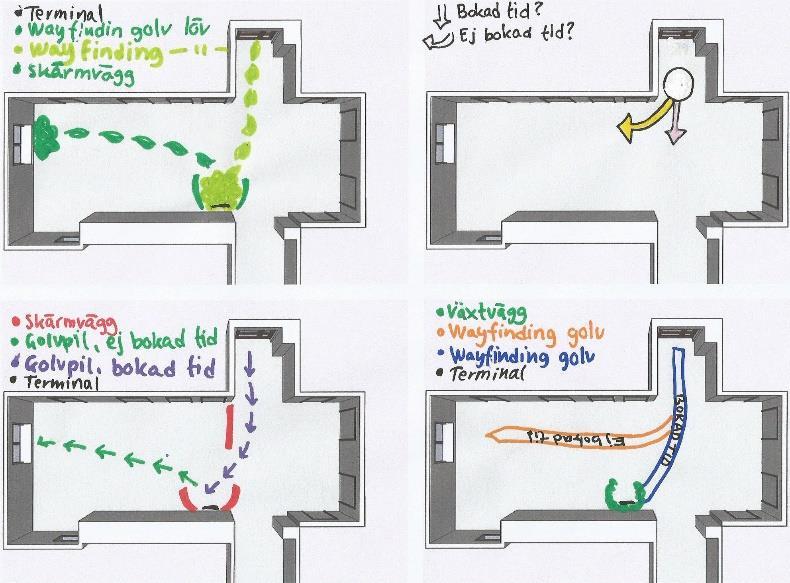 • Terminal
• Wayfindin golv löv
• Wayfinding — " —
• Skärmvägg
Bokad tid?
Ej bokad tid?
• Skärmvägg
• Golvpil, ej bokad tid
• Golvpil, bokad tid
• Terminal
• Växtvägg
• Wayfinding golv
• Wayfinding golv
• Terminal
BOKAD TID
Ej bokad tid